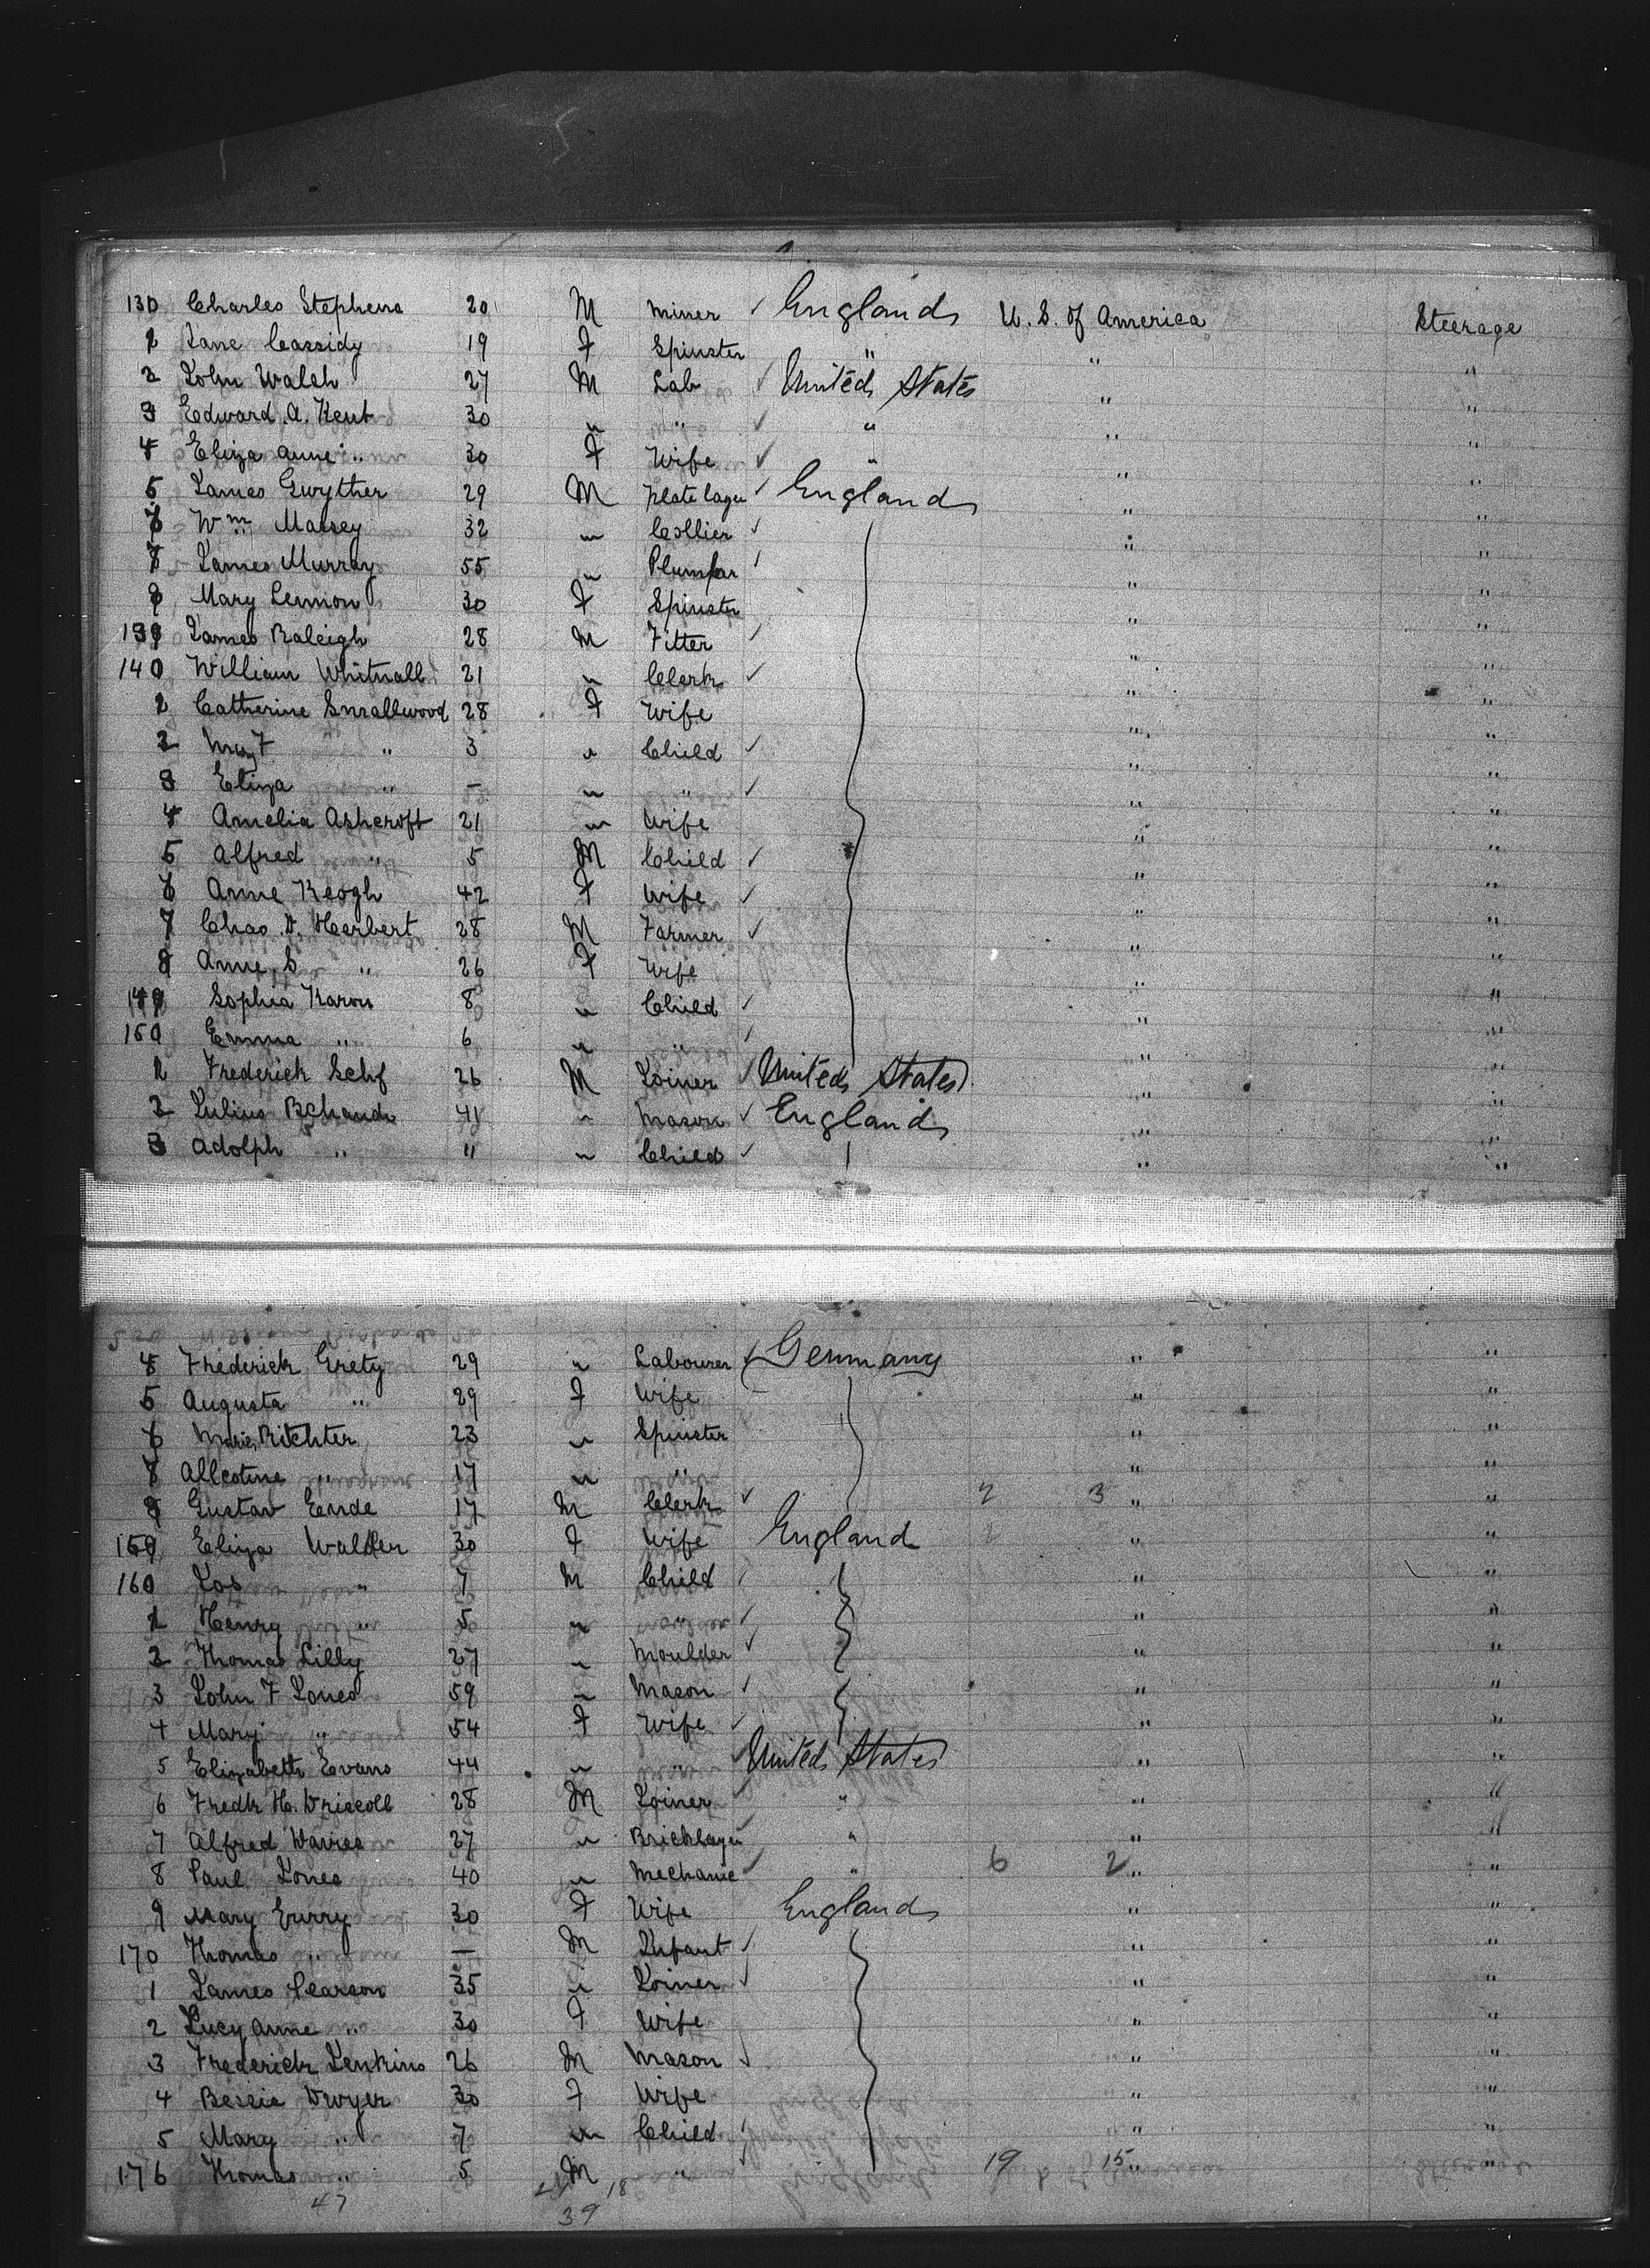 130 Charles Stephens 20 M Miner ✓ England U. S. of America Steerage
1 Jane Cassidy 19 F Spinster " " "
2 John Walsh 27 M Lab ✓ United States " "
3 Edward. A. Kent 30 " " ✓ " " "
4 Eliza Anne " 30 F Wife ✓ " " "
5 James Gwyther 29 M Platelayer ✓ England " "
6 Wm Massey 32 " Collier ✓ " "
7 James Murray 55 " Plumber ✓ " "
8 Mary Lennon 30 F Spinster " "
139 James Raleigh 28 M Fitter ✓ " "
140 William Whitnall 21 " Clerk ✓ " "
1 Catherine Smallwood 28 F Wife " "
2 May F " 3 " Child ✓ " "
3 Eliza " — " " ✓ " "
4 Amelia Ashcroft 21 " Wife " "
5 Alfred " 5 M Child ✓ " "
6 Anne Keogh 42 F Wife ✓ " "
7 Chas. D. Herbert 28 M Farmer ✓ " "
8 Anne S " 26 F Wife " "
149 Sophia Karon 8 " Child ✓ " "
150 Emma " 6 " " ✓ " "
1 Frederick 26 M Joiner ✓ United States " "
2 Julius 41 " Mason ✓ England " "
3 Adolph " 11 " Child ✓ " "
4 Frederick Grety 29 " Labourer ✓ Germany " "
5 Augusta " 29 F Wife " "
6 Marie Richter 23 " Spinster " "
7 " 17 " " " "
8 Gustav Eende 17 M Clerk ✓ 2 3 " "
159 Eliza Walker 30 F Wife England " "
160 Jos " 7 M Child ✓ " "
1 Henry " 5 " " ✓ " "
2 Thomas Lilly 27 " Moulder ✓ " "
3 John F Jones 59 " Mason ✓ " "
4 Mary " 54 F Wife ✓ " "
5 Elizabeth Evans 44 " " United States " "
6 Fredk H. Driscoll 28 M Joiner ✓ " " "
7 Alfred Davies 27 " Bricklayer ✓ " " "
8 Paul Jones 40 " Mechanic ✓ " 6 2 " "
9 Mary Gurry 30 F Wife England " "
170 Thomas " — M Infant ✓ " "
1 James Pearson 35 " Joiner ✓ " "
2 Lucy Anne " 30 F Wife " "
3 Frederick Jenkins 26 M Mason ✓ " "
4 Bessie Dwyer 30 F Wife " "
5 Mary " 7 " Child ✓ " "
176 Thomas " 5 M " ✓ 19 15 " "
47 18
39